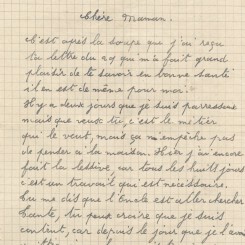 Chère Maman.
C'est après la soupe que j'ai reçu
ta lettre du 29 qui m'a fait grand
plaisir de te savoir en bonne santé
il en est de même pour moi.
Il y a deux jours que je suis parresseux
mais que veux tu, c'est le métier
qui le veut, mais ça m'empêche pas
de penser a la maison. Hier j'ai encore
fait la lessive, car tous les huit jours
c'est un travail qui est nécessaire.
Tu me dis que l'Oncle est aller chercher
tante, tu peux croire que je suis
content, car depuis le jour que je l'ai